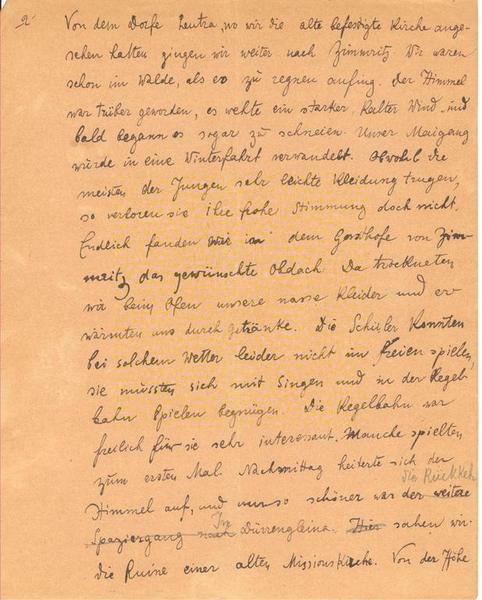 2
Von dem Dorfe Leutra, wo wir die alte befestigte Kirche ange-
sehen hatten gingen wir weiter nach Zimmritz. Wir waren
schon im Walde, als es zu regnen aufing. Der Himmel
war trüber geworden, es wehte ein starker, kalter Wind und
bald begann es sogar zu schneien. Unser Maigang
wurde in eine Winterfahrt verwandelt. Obwohl die
meisten der Jungen sehr leichte Kleidung trugen,
so verloren sie ihre frohe Stimmung doch nicht.
Endlich fanden wir in dem Gasthofe von Zim-
mritz das gewünschte Obdach. Da trockneten
wir beim Ofen unsere nasse Kleider und er
wärmten uns durch Getränke. Die Schüler konnten
bei solchem Wetter leider nicht im Freien spielen,
sie mussten sich mit Singen und in der Kegel-
bahn Spielen begnügen. Die Kegelbahn war
freilich für sie sehr interessant. Manche spielten
zum ersten Mal. Nachmittag heiterte sich der
die Rückkeh
Himmel auf, und um so schöner war der weitere
Spaziergang nach Dürrengleina. Hier sahen wir
die Ruine einer alten Missionskirche. Von der Höhe